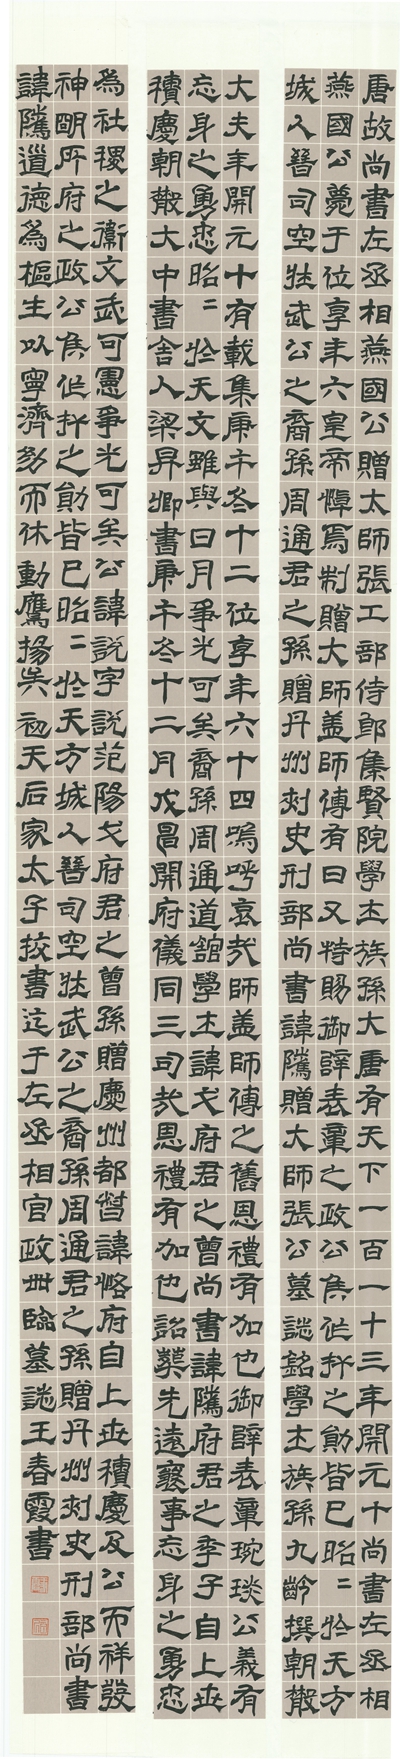 唐故尚書左丞相燕國公贈太師張工部侍郎集賢院學士族孫大唐有天下一百一十三年開元十尚書左丞相
燕國公薨于位享年六皇帝悼焉制贈大師蓋師傅有曰又特賜御辭表章之政公侯作扞之勛皆已昭二於天方
城人晉司空壯武公之裔孫周通君之孫贈丹州刺史刑部尚書諱騭贈大師張公墓誌銘學士族孫九齡撰朝散
大夫年開元十有載集庚午冬十二位享年六十四嗚呼哀哉師蓋師傅之舊恩禮有加也御辭表章琬琰公義有
忘身之勇忠昭二於天文雖與日月爭光可矣裔孫周通道館學士諱弋府君之曾尚書諱騭府君之季子自上世
積慶朝散大中書舍人梁昇卿書庚午冬十二月戊昌開府儀同三司哉恩禮有加也詔葬先遠襄事忘身之勇忠
為社稷之衛文武可憲爭光可矣公諱說字說范陽弋府君之曾孫贈慶州都督諱恪府自上世積慶及公而祥發
神明所府之政公侯作扞之勛皆已昭二於天方城人晉司空壯武公之裔孫周通君之孫贈丹州刺史刑部尚書
諱騭道德為樞生以寧濟幼而休動鷹揚矣初天后家太子校書迄于左丞相官政卌臨墓誌王春霞書